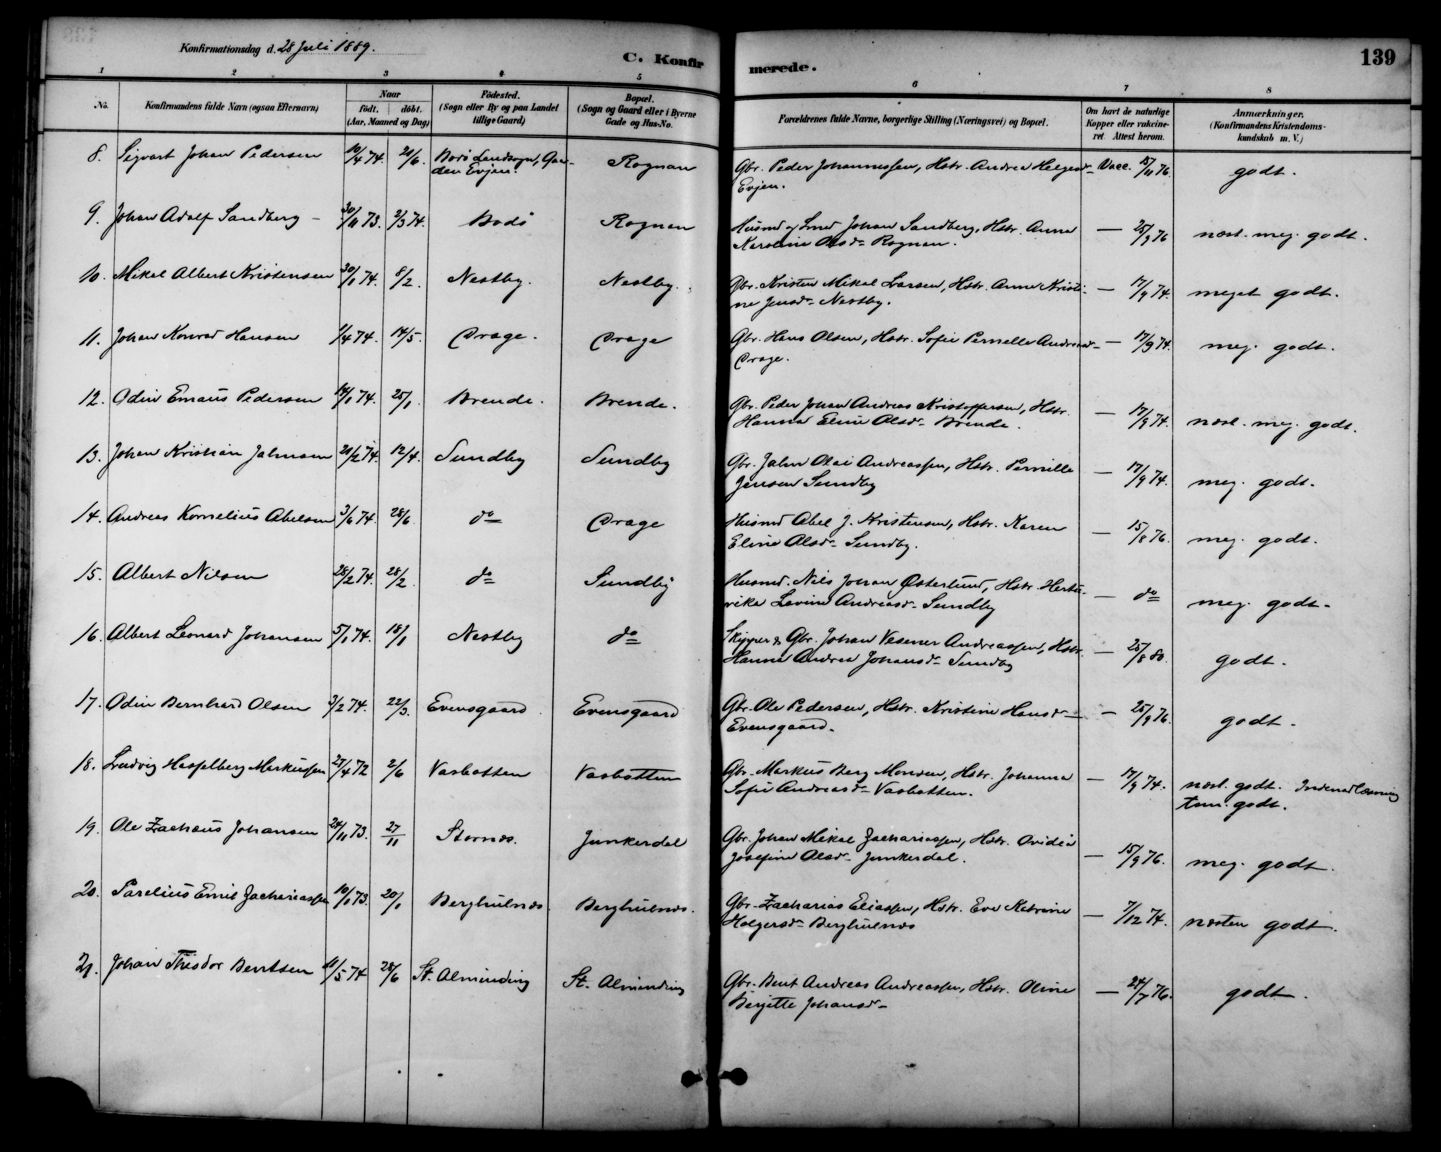 Konfirmationsdag d. 28 Juli 1889.
C. Konfirmerede.
139
1 2 3 4 5 6 7 8
No. Konfirmandens fulde Navn (ogsaa Efternavn) Naar födt. döbt. (Aar, Maaned og Dag) Födested. (Sogn eller By og paa Landet tillige Gaard) Bopæl. (Sogn og Gaard eller i Byerne Gade og Hus-No. Forældrenes fulde Navne, borgerlige Stilling (Næringsvei) og Bopæl. Om havt de naturlige Kopper eller vakcineret. Attest herom. Anmærkninger. (Konfirmandens Kristendomskundskab m. V.)
8. Sigvart Johan Pedersen 10/4 74. 21/6. Bodö Landsogn, Gaarden Evjen. Rognan Gbr. Peder Johannessen, Hstr. Andrea Helgesd- Vacc. 15/11 76. godt.
Evjen.
9. Johan Adolf Sandberg – 30/11 73. 2/3 74. Bodö Rognan Husmd og Smed Johan Sandberg, Hstr. Anna — 25/9 76 næst. meg. godt.
Karoline Olsd- Rognan.
10. Mikal Albert Kristensen 30/1 74. 8/2. Nestby. Nestby. Gbr. Kristen Mikal Larsen, Hstr. Anne Kristi- — 17/9 74. meget godt.
ne Jensd- Nestby.
11. Johan Konrad Hansen 1/4 74. 14/5. Drage. Drage Gbr. Hans Olsen, Hstr. Sofie Pernelle Andreasd- — 17/9 74. meg. godt.
Drage.
12. Odin Emaus Pedersen 14/1 74. 25/1. Brende. Brende. Gbr. Peder Johan Andreas Kristoffersen, Hstr. — 17/9 74. næst. meg. godt.
Hanna Eline Olsd- Brende.
13. Johan Kristian Jahnsen 21/2 74. 12/4. Sundby Sundby Gbr. Jahn Olai Andreassen, Hstr. Pernille — 17/9 74. meg. godt.
Jensen Sundby
14. Andreas Kornelius Abelsen 3/6 74. 28/6 do Drage Husmd Abel J. Kristensen, Hstr. Karen — 15/8 76. meg. godt.
Eline Olsd- Sundby.
15. Albert Nilsen 28/2 74. 28/2. do Sundby Husmd. Nils Johan Österlund, Hstr. — do meg. godt.
Lavine Andreasd- Sundby
16. Albert Leonard Johansen 5/1 74. 18/1 Nestby do Skipper & Gbr. Johan Andreassen, Hstr. — 25/8 80. godt.
Hanna Andrea Johansd- Sundby
17. Odin Bernhard Olsen 3/2 74. 22/3. Evensgaard Evensgaard Gbr. Ole Pedersen, Hstr. Kristine Hansd- — 25/9 76. godt.
Evensgaard.
18. Ludvig Hasselberg Markussen 27/4 72 2/6 Vasbotten Vasbotten Gbr. Markus Berg Monsen, Hstr. Johanna — 17/9 74. næst. godt. Indenadlæsning
Sofie Andreasd- Vasbotten. tem. godt.
19. Ole Zachæus Johansen 24/11 73. 27/11 Stornæs. Junkerdal Gbr. Johan Mikal Zachariassen, Hstr. Ovidia — 15/9 76. meg. godt.
Josefine Olsd- Junkerdal.
20. Parelius Emil Zachariassen 10/1 73. 20/1 Berghulnæs. Berghulnæs. Gbr. Zacharias Eliassen, Hstr. Eva Katrine — 7/12 74. næsten godt.
Holgersd- Berghulnæs
21. Johan Theodor Bentsen 11/5 74 28/6 St. Alminding St. Alminding Gbr. Bent Andreas Andreassen, Hstr. Oline — 24/7 76. godt.
Bergitte Johansd-